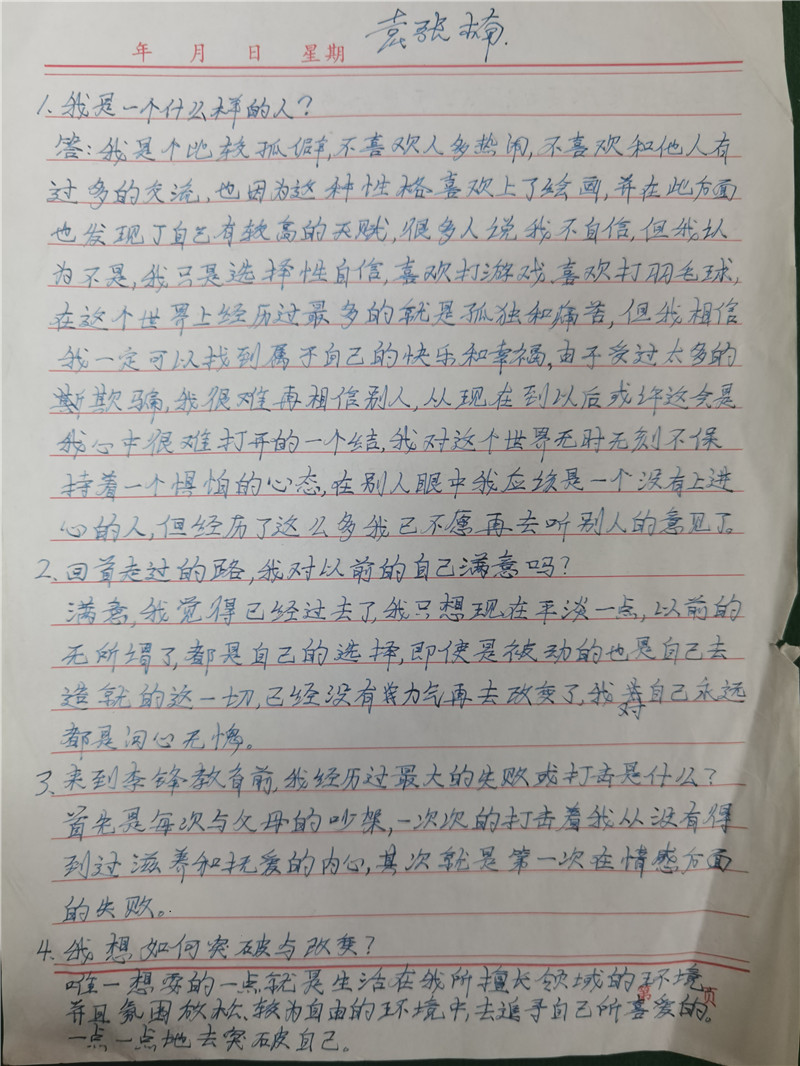 袁张楠.
年 月 日 星期
1、我是一个什么样的人？
答：我是个比较孤僻，不喜欢人多热闹，不喜欢和他人有
过多的交流，也因为这种性格喜欢上了绘画，并在此方面
也发现了自己有较高的天赋，很多人说我不自信，但我认
为不是，我只是选择性自信，喜欢打游戏、喜欢打羽毛球，
在这个世界上经历过最多的就是孤独和痛苦，但我相信
我一定可以找到属于自己的快乐和幸福，由于受过太多的
欺骗，我很难再相信别人，从现在到以后或许这会是
我心中很难打开的一个结，我对这个世界无时无刻不保
持着一个惧怕的心态，在别人眼中我应该是一个没有上进
心的人，但经历了这么多我已不愿再去听别人的意见了。
2、回首走过的路，我对以前的自己满意吗？
满意，我觉得已经过去了，我只想现在平淡一点，以前的
无所谓了，都是自己的选择，即使是被动的也是自己去
造就的这一切，已经没有力气再去改变了，我对自己永远
都是问心无愧。
3、来到李锋教育前，我经历过最大的失败或打击是什么？
首先是每次与父母的吵架，一次次的打击着我从没有得
到过滋养和抚爱的内心，其次就是第一次在情感方面
的失败。
4、我想如何突破与改变？
唯一想要的一点就是生活在我所擅长领域的环境
并且氛围放松、较为自由的环境中，去追寻自己所喜爱的。
一点一点地去突破自己。
第 页